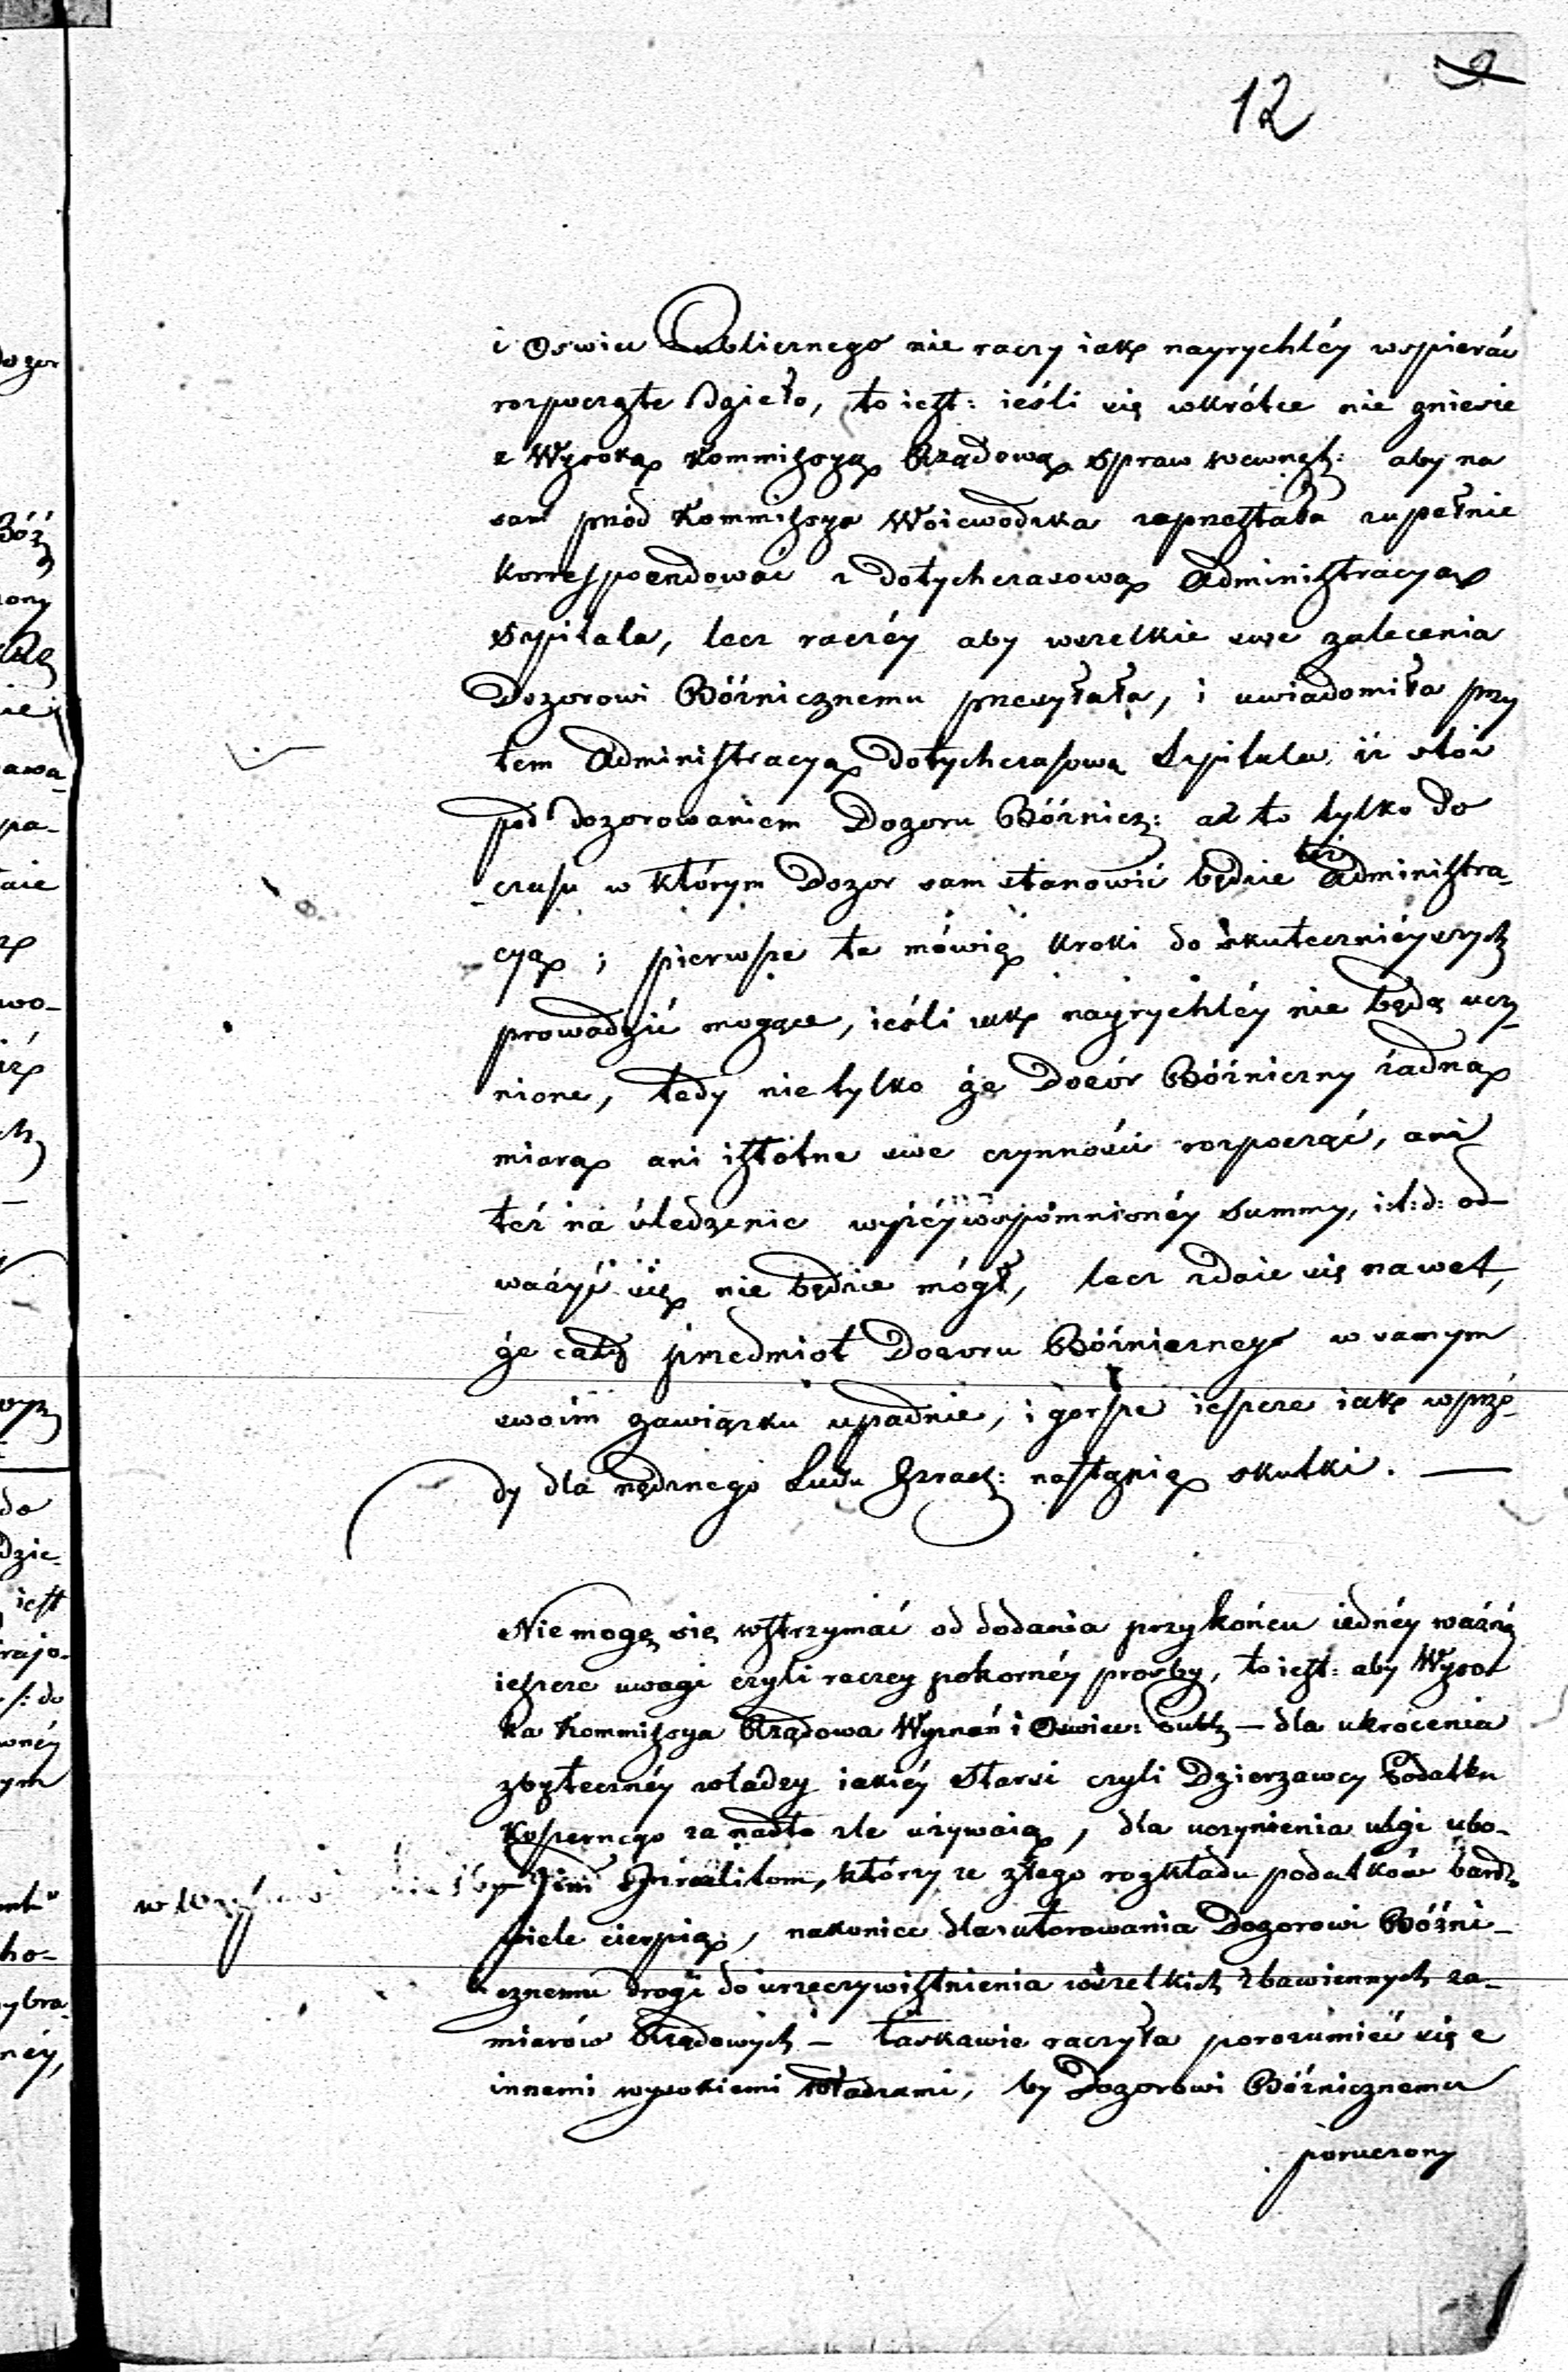 12
i Oswiec Publicznego nie raczy iak nayrychléy wspieráć
rozpoczęte dzieło, to iest: ieśli się wkrótce nie zniesie
z Wysoką Kommissyą Rządową Spraw wewnęt: aby na
sam przód Kommissya Woiewodzka zaprzestała zupełnie
korrespoendować z dotychczasową Administracyą
Szpitala, lecz raczéy aby wszelkie swe zalecenia
Dozorowi Bóźnicznemu przesyłała, i uwiadomiła przy
tem Administracyą dotychczasową Szpitala, iż stoi
pod dozorowaniem Dozoru Bóźnicz: aż to tylko do
czasu w którym Dozor sam stanowić będzie też Administra-
cyą; pierwsze te mówię kroki do skutecznieyszych
prowadzić mogące, ieśli iak nayrychléy nie będą uczy-
nione, tedy nie tylko że Dozór Bóźniczny żadną
miarą ani istotne swe czynności rozpocząć, ani
też na śledzenie wyżéywspomnionéy Summy, i:t:d: od-
ważyć się nie będzie mógł, lecz zdaie się nawet,
że cały przedmiot Dozoru Bóźnicznego w samym
swoim zawiązku upadnie, i gorsze ieszcze iak wprzó-
dy dla nędznego Ludu Izrael: nastąpią skutki. —
Nie mogę się wstrzymać od dodania przy końcu iednéy ważnéy
ieszcze uwagi czyli raczey pokornéy prosby, to iest: aby Wyso-
ka Kommissya Rządowa Wyznań i Oswiec: Publ: — dla ukrócenia
zbyteczney władzy iakiéy Starsi czyli Dzierzawcy Podatku
Koszernego za nadto zle używaią, dla uczynienia ulgi ubo-
gim Izraelitom, którzy ze złego rozkładu podatków bardzo
wiele cierpią, nakoniec dla utorowania Dozorowi Bóźni-
cznemu drogi do urzeczywistnienia wszelkich zbawiennych za-
miarów Rządowych — łaskawie raczyła porozumieć się z
innemi wysokiemi Władzami, by Dozorowi Bóźnicznemu
poruczony